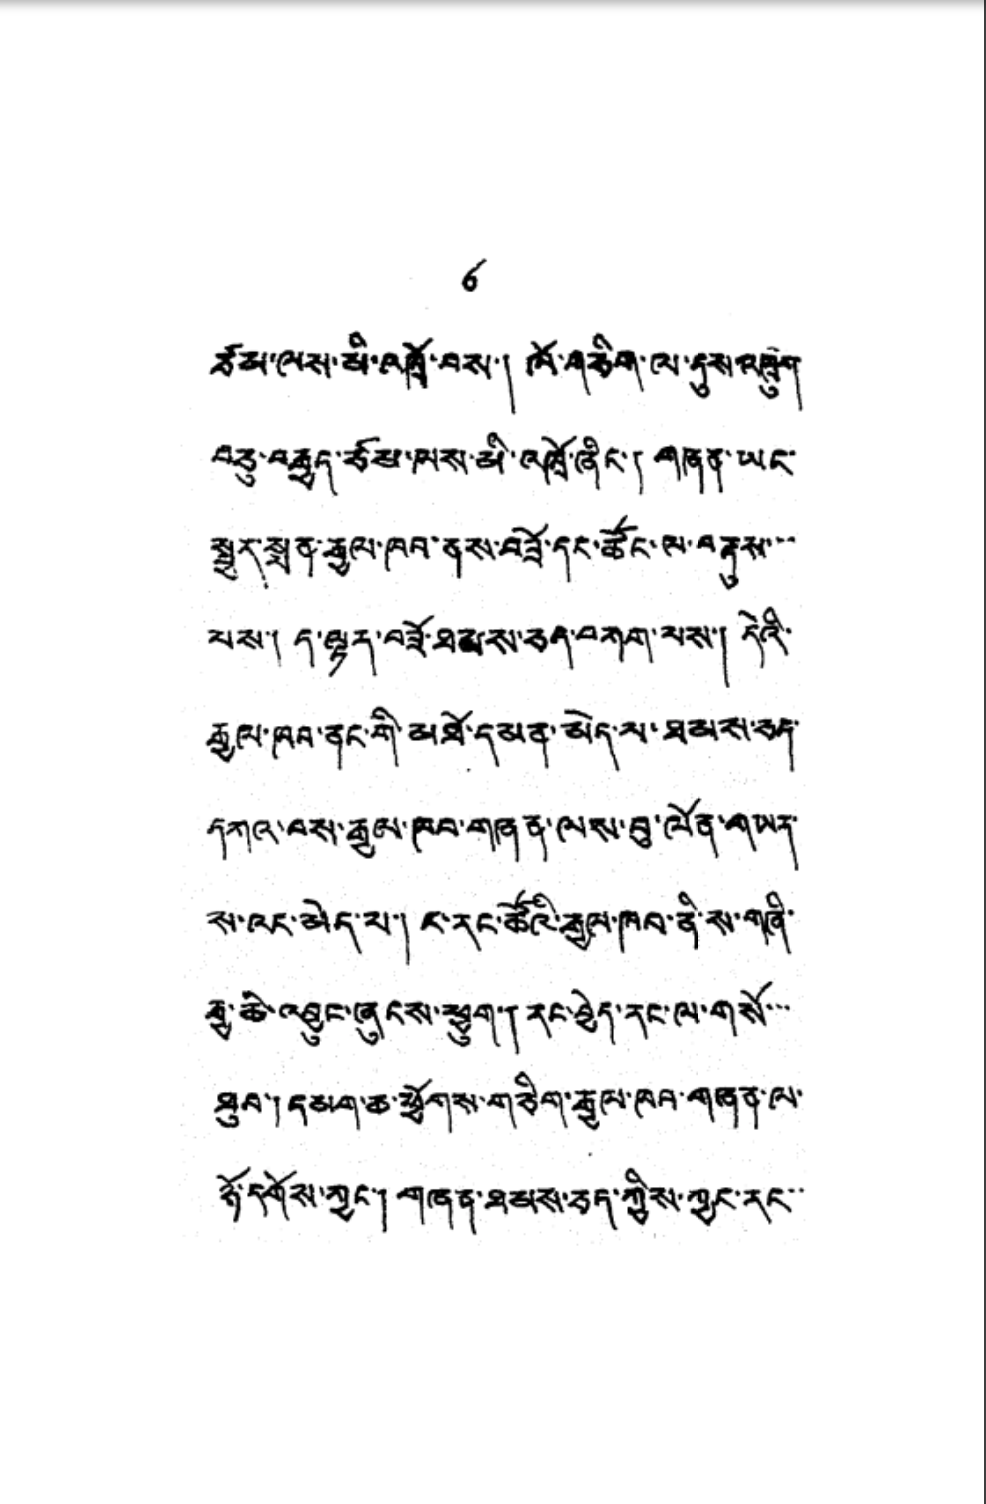 ༦
ཙམ་ལས་མི་འགྲོ་བས། ལོ་གཅིག་ལ་དུས་འཁྲུག
བཅུ་བརྒྱད་ཙམ་ལས་མི་འགྲོ་ཞིང་། གཞན་ཡང་
སྔར་སྨན་རྒྱལ་ཁབ་ནས་བཟོ་དང་ཚོང་ལ་བརྩས་
པས། ད་ལྟར་བཟོ་ཐམས་ཅད་བཀག་པས། དེའི་
རྒྱལ་ཁབ་ནང་གི་མཐོ་དམན་མེད་པ་ཐམས་ཅད་
དཀའ་བས་རྒྱལ་ཁབ་གཞན་ལས་བུ་ལོན་གཡར་
ས་ཡང་མེད་པ། ང་རང་ཚོའི་རྒྱལ་ཁབ་ནི་ས་གཞི་
རྒྱ་ཆེ་འབྲུང་ཞུངས་ཕྱུག། རང་བྱེད་རང་ལ་གསོ་
ཐུབ། དམག་ཆ་ཕྱོགས་གཅིག་རྒྱལ་ཁབ་གཞན་ལ་
ཉོ་དགོས་ཀྱང་། གཞན་ཐམས་ཅད་ཀྱིས་ཀྱང་རང་